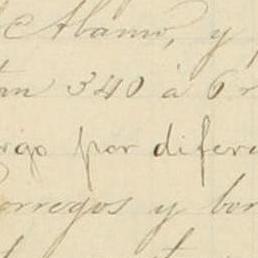 Alamo, y
tan 340 à 6 r
argo por difere
orregos y bor